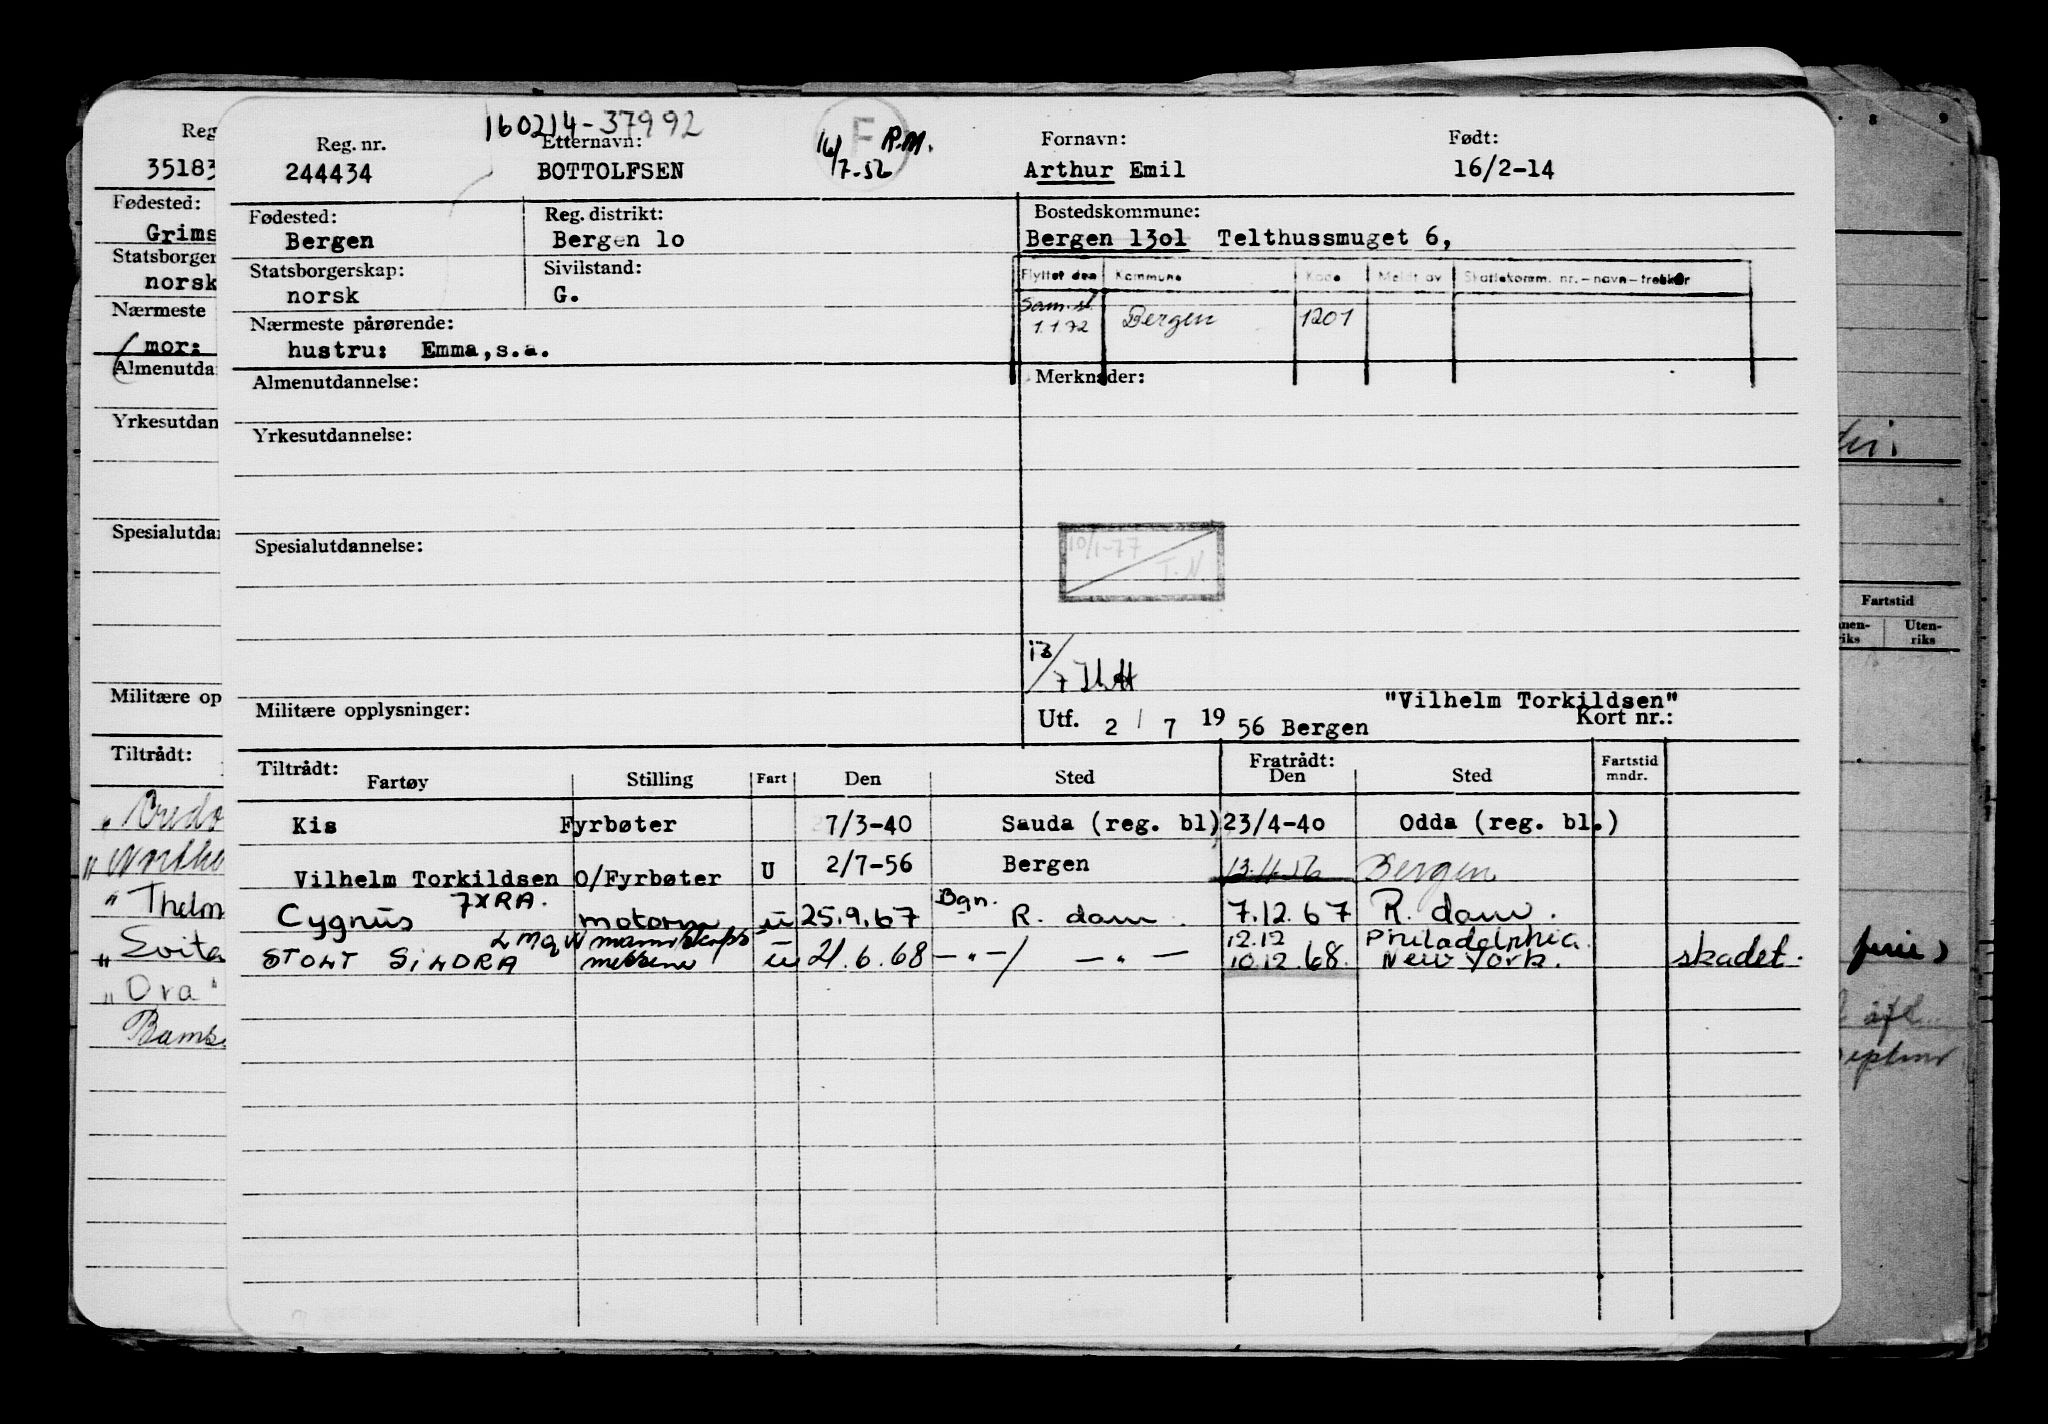 160214-37992
Reg. nr. Etternavn: F R.M. Fornavn: Født:
244434 BOTTOLFSEN 16/7-52 Arthur Emil 16/2-14
Fødested: Reg. distrikt: Bostedskommune:
Bergen Bergen lo Bergen 13ol Telthussmuget 6,
Statsborgerskap: Sivilstand: Flyttet den Kommune Kode Meldt av Skattekomm. nr.-navn-trekker
norsk G. 1.1 72 Bergen 1201
Nærmeste pårørende:
hustru: Emma,s.a.
Almenutdannelse: Merknader:
Yrkesutdannelse:
Spesialutdannelse: 10/1-77 T.N.
13/7
Militære opplysninger: "Vilhelm Torkildsen"
Utf. 2 / 7 19 56 Bergen Kort nr.:
Tiltrådt: Fratrådt: Fartstid mndr.
Fartøy Stilling Fart Den Sted Den Sted
Kis Fyrbøter 7/3-40 Sauda (reg. bl) 23/4-4o Odda (reg. bl.)
Vilhelm Torkildsen O/Fyrbøter U 2/7-56 Bergen Bergen
Cygnus JXRA. motorm u 25.9.67 Bgn. R. dam. 7.12.67 R. dam.
LMQW mannskaps 12.12 Philadelphia.
STOLT SINDRA u 21.6.68 —"—/ —"— 10.12.68. New York. skadet.
Reg
35183
Fødested:
Grims
Statsborger
norsk
Nærmeste
mor:
Almenutda
Yrkesutdan
Spesialutda
Militære op
Tiltrådt:
"Thelm
"Evita
"Ora"
8 9
Fartstid
Uten-
riks